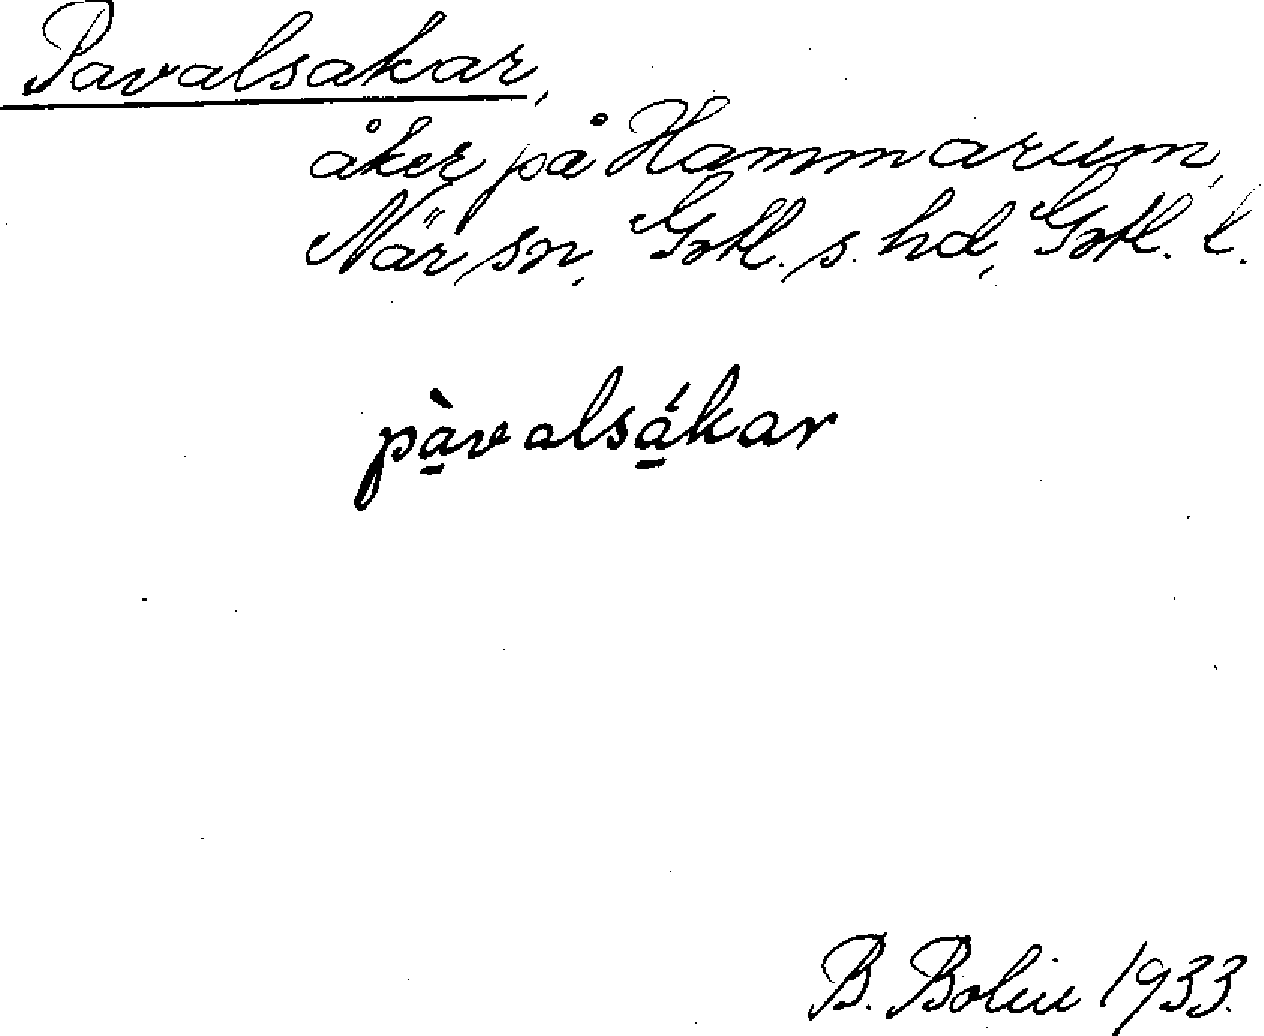 Pavalsakar,
åker på Hammarum,
När sn, Gotl. s. hd, Gotl. l.
pà̠valsá̠kar
B. Bolin 1933.